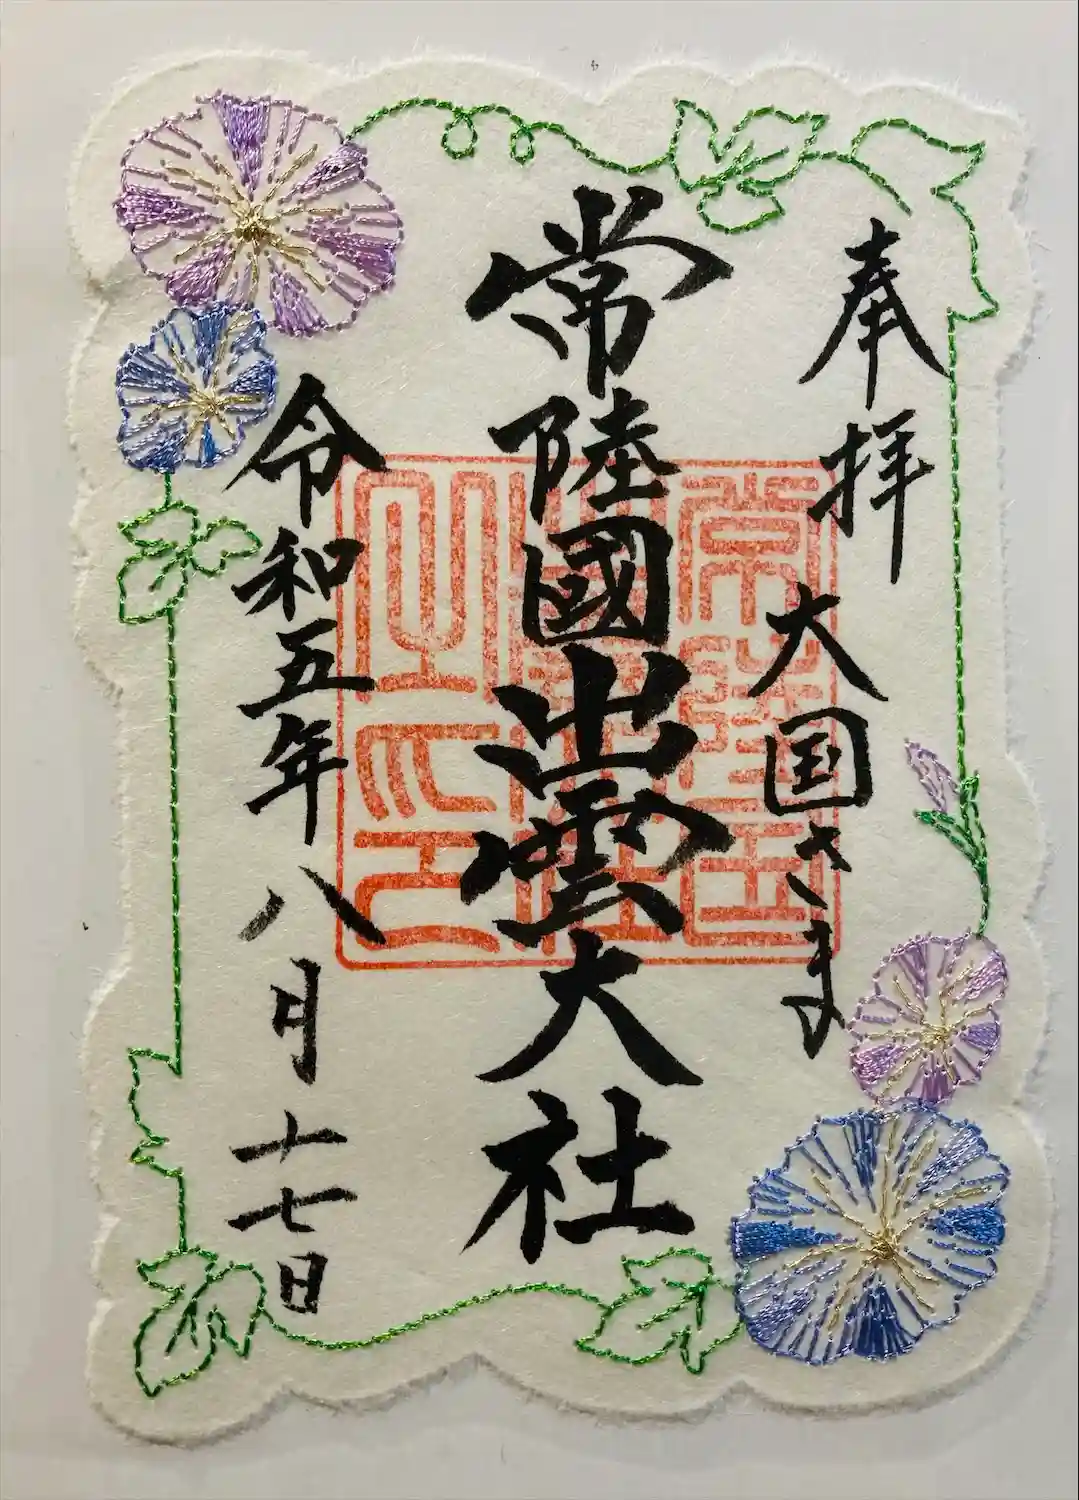 奉拝
大国さま
常陸國出雲大社
令和五年八月十七日